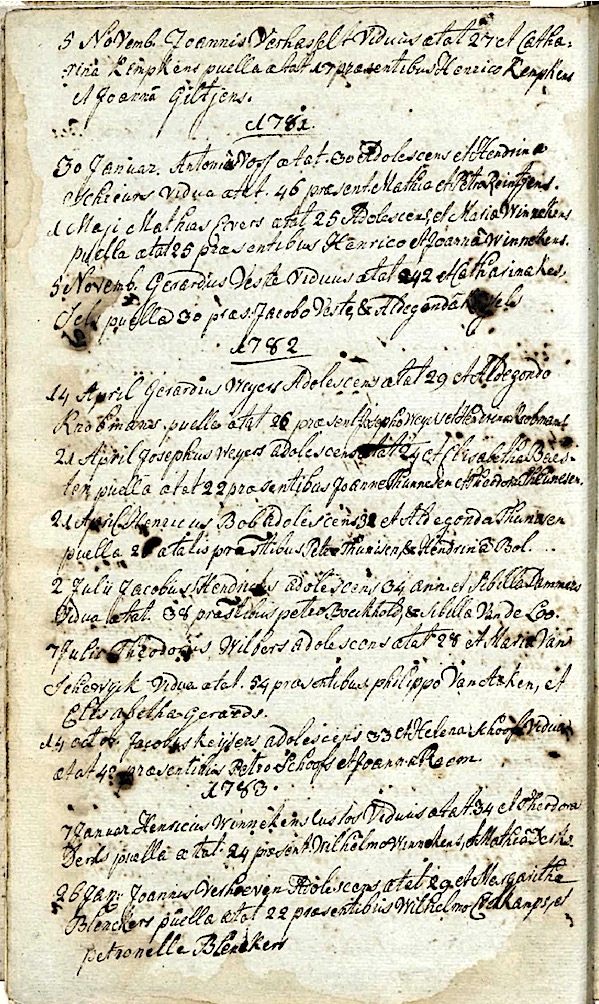 5 Novemb. Joannis Verhasselt Viduus ætat 27 et Catha=
rina Kempkens puella ætat 17 præsentibus Henrico Kempkens
et Joanna Giltjens.
1781.
30 Januar. Antonius Voss ætat. 30 Adolescens et Hendrina
Schieurs Vidua ætat. 46 præsent. Mathia et Petro Reintjens.
1 Maji Mathias Evers ætat 25 Adolescens, et Maria Winnekens
puella ætat 25 præsentibus Henrico et Joanna Winnekens.
5 Novemb. Gerardus Veste Viduus ætat 42 et Catharina Kes,
Sels puella 30 præs. Jacobo Veste, & Aldegonda Kessels
1782
14 April Gerardus Weyers Adolescens ætat 29 et Aldegonda
Knobmans puella ætat 26 præsent Josepho Weyers et Hendrina Knobmans
21 April Josephus Weyers adolescens ætat et Elisabetha Baes-
ten puella ætat 22 præsentibus Joanne Thunnesen et Theodora Thunesen.
21 April Henricus Bob adolescens 32 et Aldegonda Thunisen
puella ætatis præsentibus Petro Thunisen, & Hendrina Bol. ...
2 Julii Jacobus Hendricks adolescens 34 ann. et Sibilla Dammers
Vidua ætat. 38 præstibus petro Boeckholt, & Sibilla Van de Loo.
7 Julii Theodorus Wilbers adolescens ætat 28 et Maria Van
Schewyck Vidua ætat. 54 præsentibus philippo Van Aaken, et
Elisabetha Gerards.
14 octob. Jacobus Keysers adolescens 33 et Helena Schoofs Vidua
ætat præsentibus Petro Schoofs et Joanna Reem.
1783.
7 Januar Henricus Winnekens custos Viduus ætat 34 et Theodora
Derks puella ætat 24 præsent. Wilhelmo Winnekens, et Mathia Derks.
26 Jan: Joannes Verhoeven Adolescens ætat 29 et Margaritha
Blenckers puella ætat 22 præsentibus Wilhelmo et
petronelle Blenckers